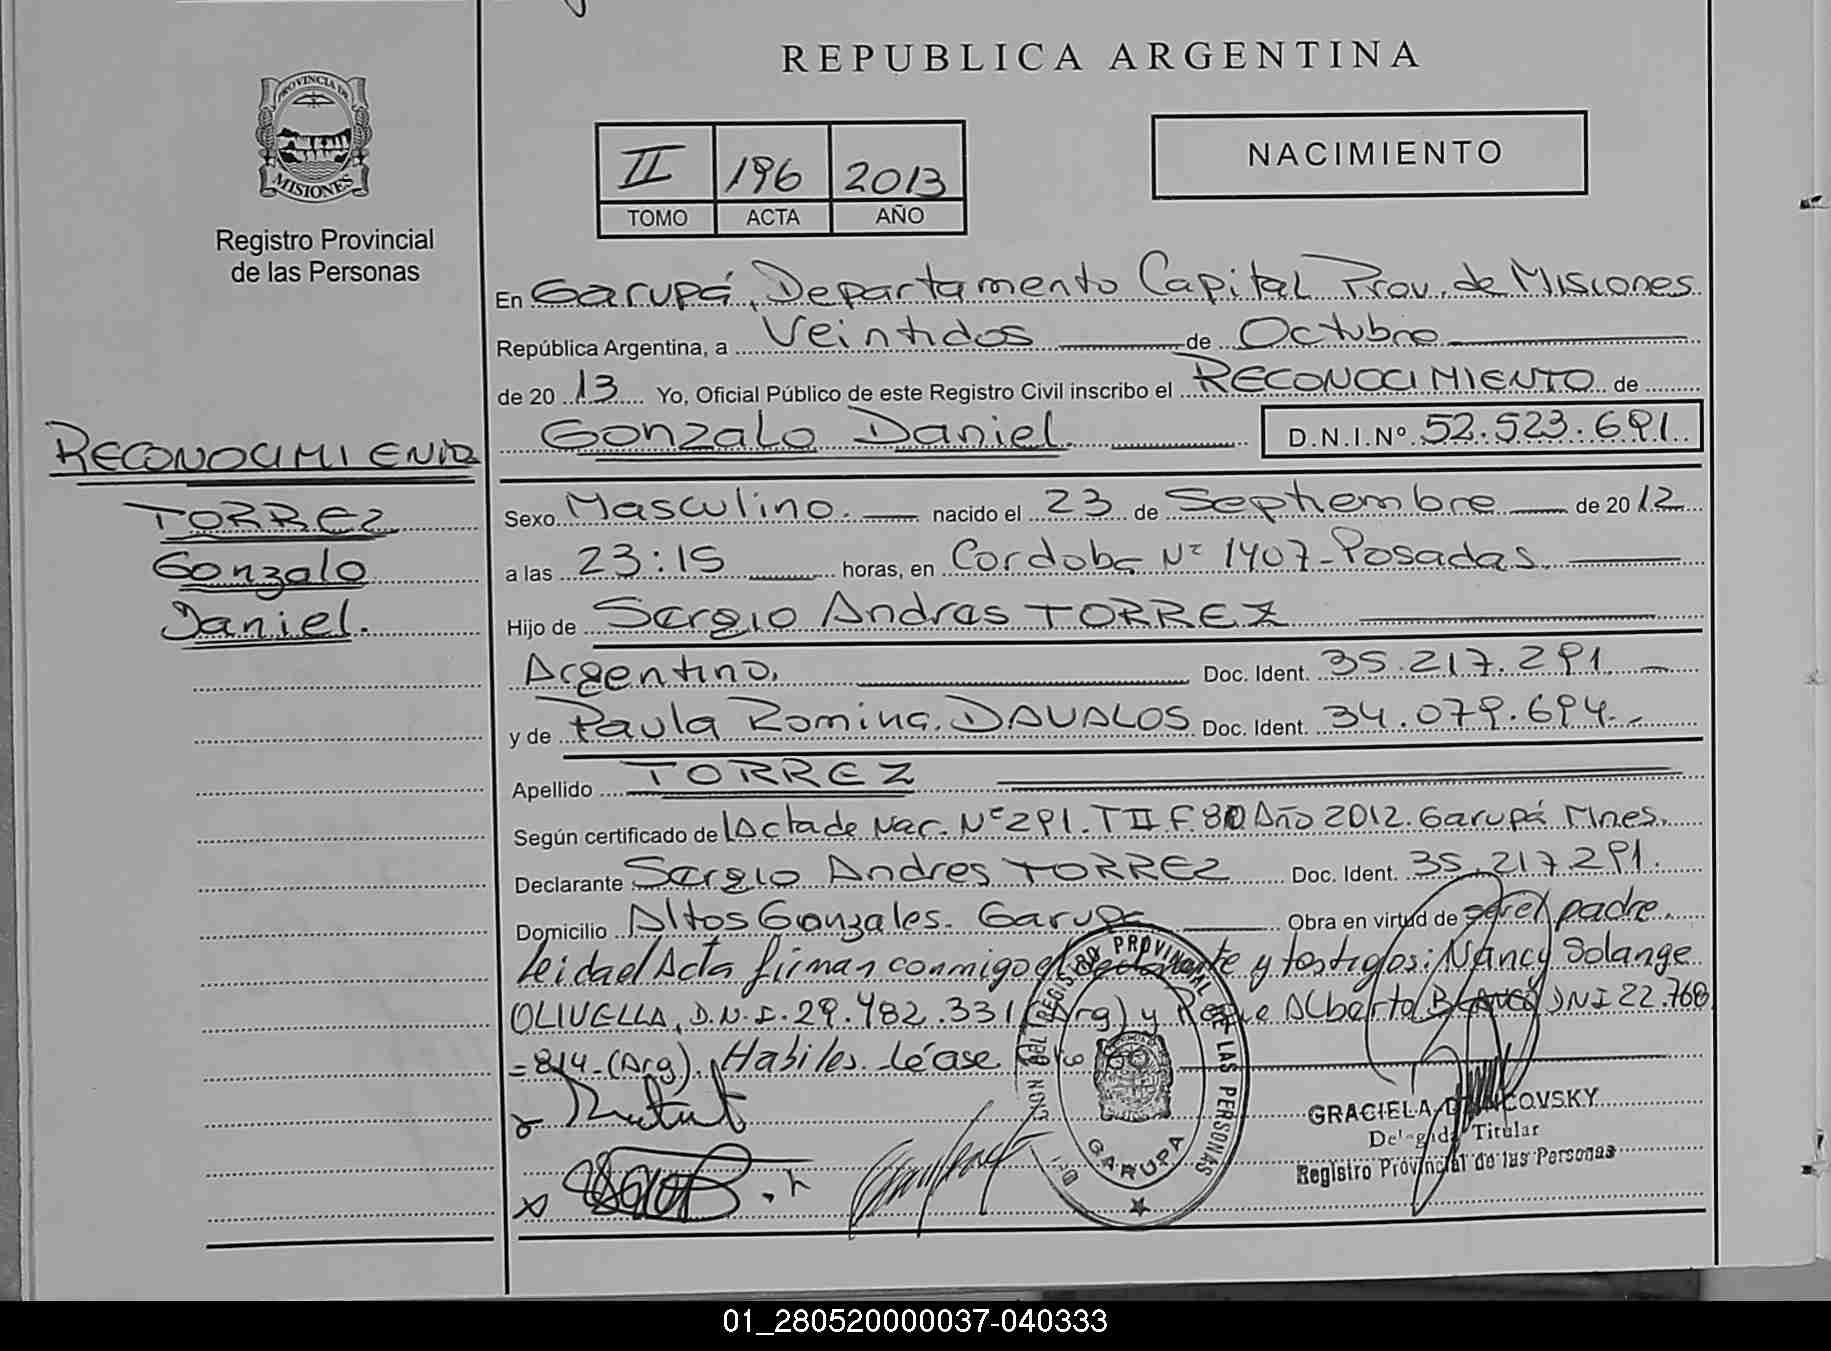 REPUBLICA ARGENTINA
PROVINCIA DE
MISIONES
Registro Provincial
de las Personas
II 196 2013
TOMO ACTA AÑO
NACIMIENTO
En Garupá, Departamento Capital Prov. de Misiones
República Argentina, a Veintidos de Octubre
de 20 13 Yo, Oficial Público de este Registro Civil inscribo el RECONOCIMIENTO de
Gonzalo Daniel. D.N.I.Nº 52.523.691
RECONOCIMIENTO
TORREZ
Gonzalo
Daniel.
Sexo Masculino. nacido el 23 de Septiembre de 20 12
a las 23:15 horas, en Cordoba Nº 1407-Posadas.
Hijo de Sergio Andres TORREZ
Argentino. Doc. Ident. 35.217.291
y de Paula Romina. DAVALOS Doc. Ident. 34.079.694.-
Apellido TORREZ
Según certificado de Acta de Nac. Nº 291. T II F. 80 Año 2012. Garupá Mnes.
Declarante Sergio Andres TORREZ Doc. Ident. 35.217.291.
Domicilio Altos Gonzales. Garupa Obra en virtud de ser el padre.
leida el Acta firman conmigo el declarante y testigos: Nancy Solange
OLIVELLA, D.N.I. 29.482.331 (Arg) y Roque Alberto DNI 22.768
=814-(Arg). Habiles. Léase
REGISTRO PROVINCIAL DE LAS PERSONAS
GARUPA
GRACIELA
Delegada Titular
Registro Provincial de las Personas
01_280520000037-040333